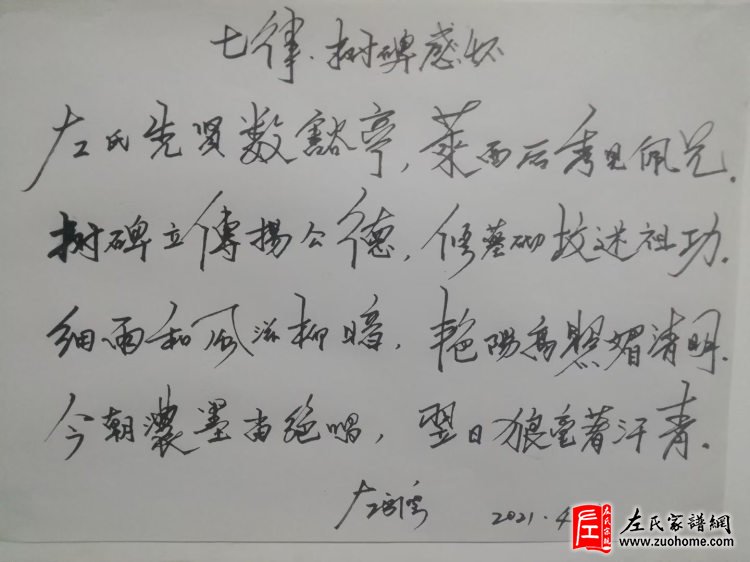 七律·树碑感怀
左氏先贤数豁亭，莱西后秀见佩兄。
树碑立傳揚公德，修墓砌坟述祖功。
细雨和风滋柳暗，艳陽高照媚清明。
今朝濃墨留絕唱，翌日狼毫著汗青。
左
2021.4
左氏家譜網
www.zuohome.com
左氏宗親